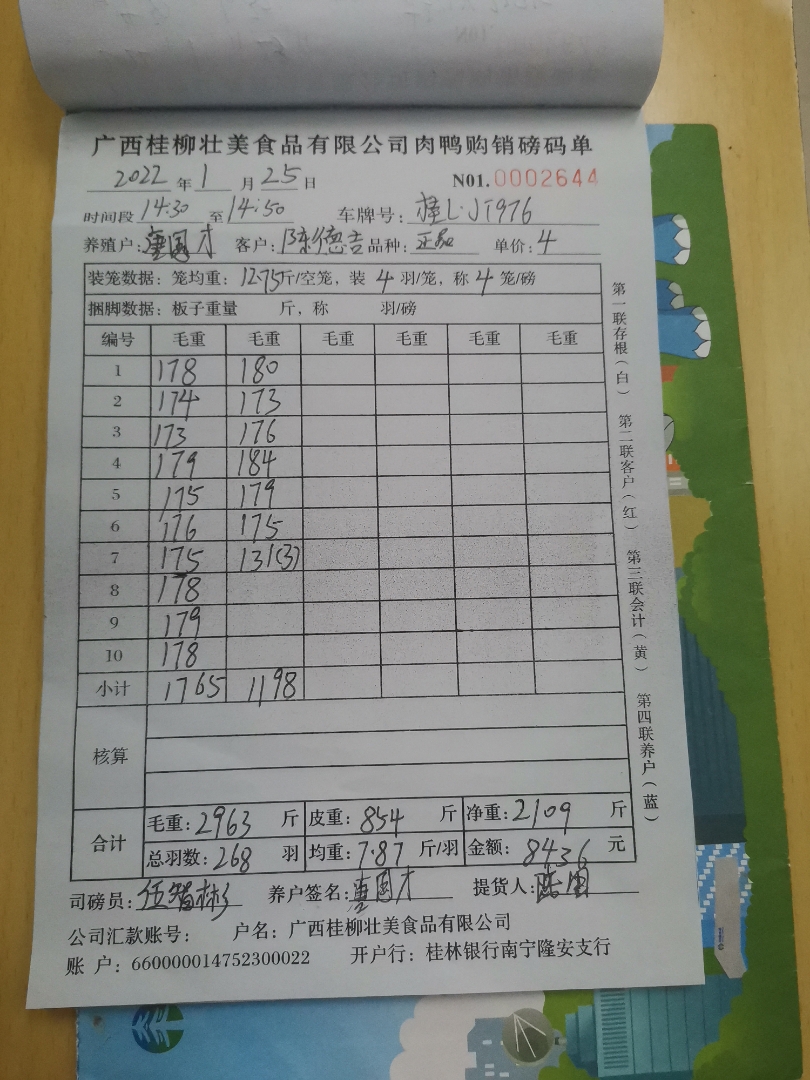 广西桂柳壮美食品有限公司肉鸭购销磅码单
2022 年 1 月 25 日 N01.0002644
时间段 14:30 至 14:50 车牌号: 桂L·JT976
养殖户: 唐国才 客户: 陈德吉 品种: 正品 单价: 4
装笼数据: 笼均重: 12.75斤/空笼, 装 4 羽/笼, 称 4 笼/磅
捆脚数据: 板子重量 斤, 称 羽/磅
编号 毛重 毛重 毛重 毛重 毛重 毛重
1 178 180
2 174 173
3 173 176
4 179 184
5 175 179
6 176 175
7 175 131(3)
8 178
9 179
10 178
小计 1765 1198
核算
合计 毛重: 2963 斤 皮重: 854 斤 净重: 2109 斤
总羽数: 268 羽 均重: 7.87 斤/羽 金额: 8436 元
司磅员: 伍智彬 养户签名: 唐国才 提货人:
公司汇款账号: 户名: 广西桂柳壮美食品有限公司
账 户: 660000014752300022 开户行: 桂林银行南宁隆安支行
第一联存根(白) 第二联客户(红) 第三联会计(黄) 第四联养户(蓝)